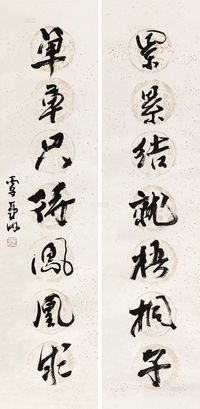 累累結就梧桐子
單單只待鳳凰求